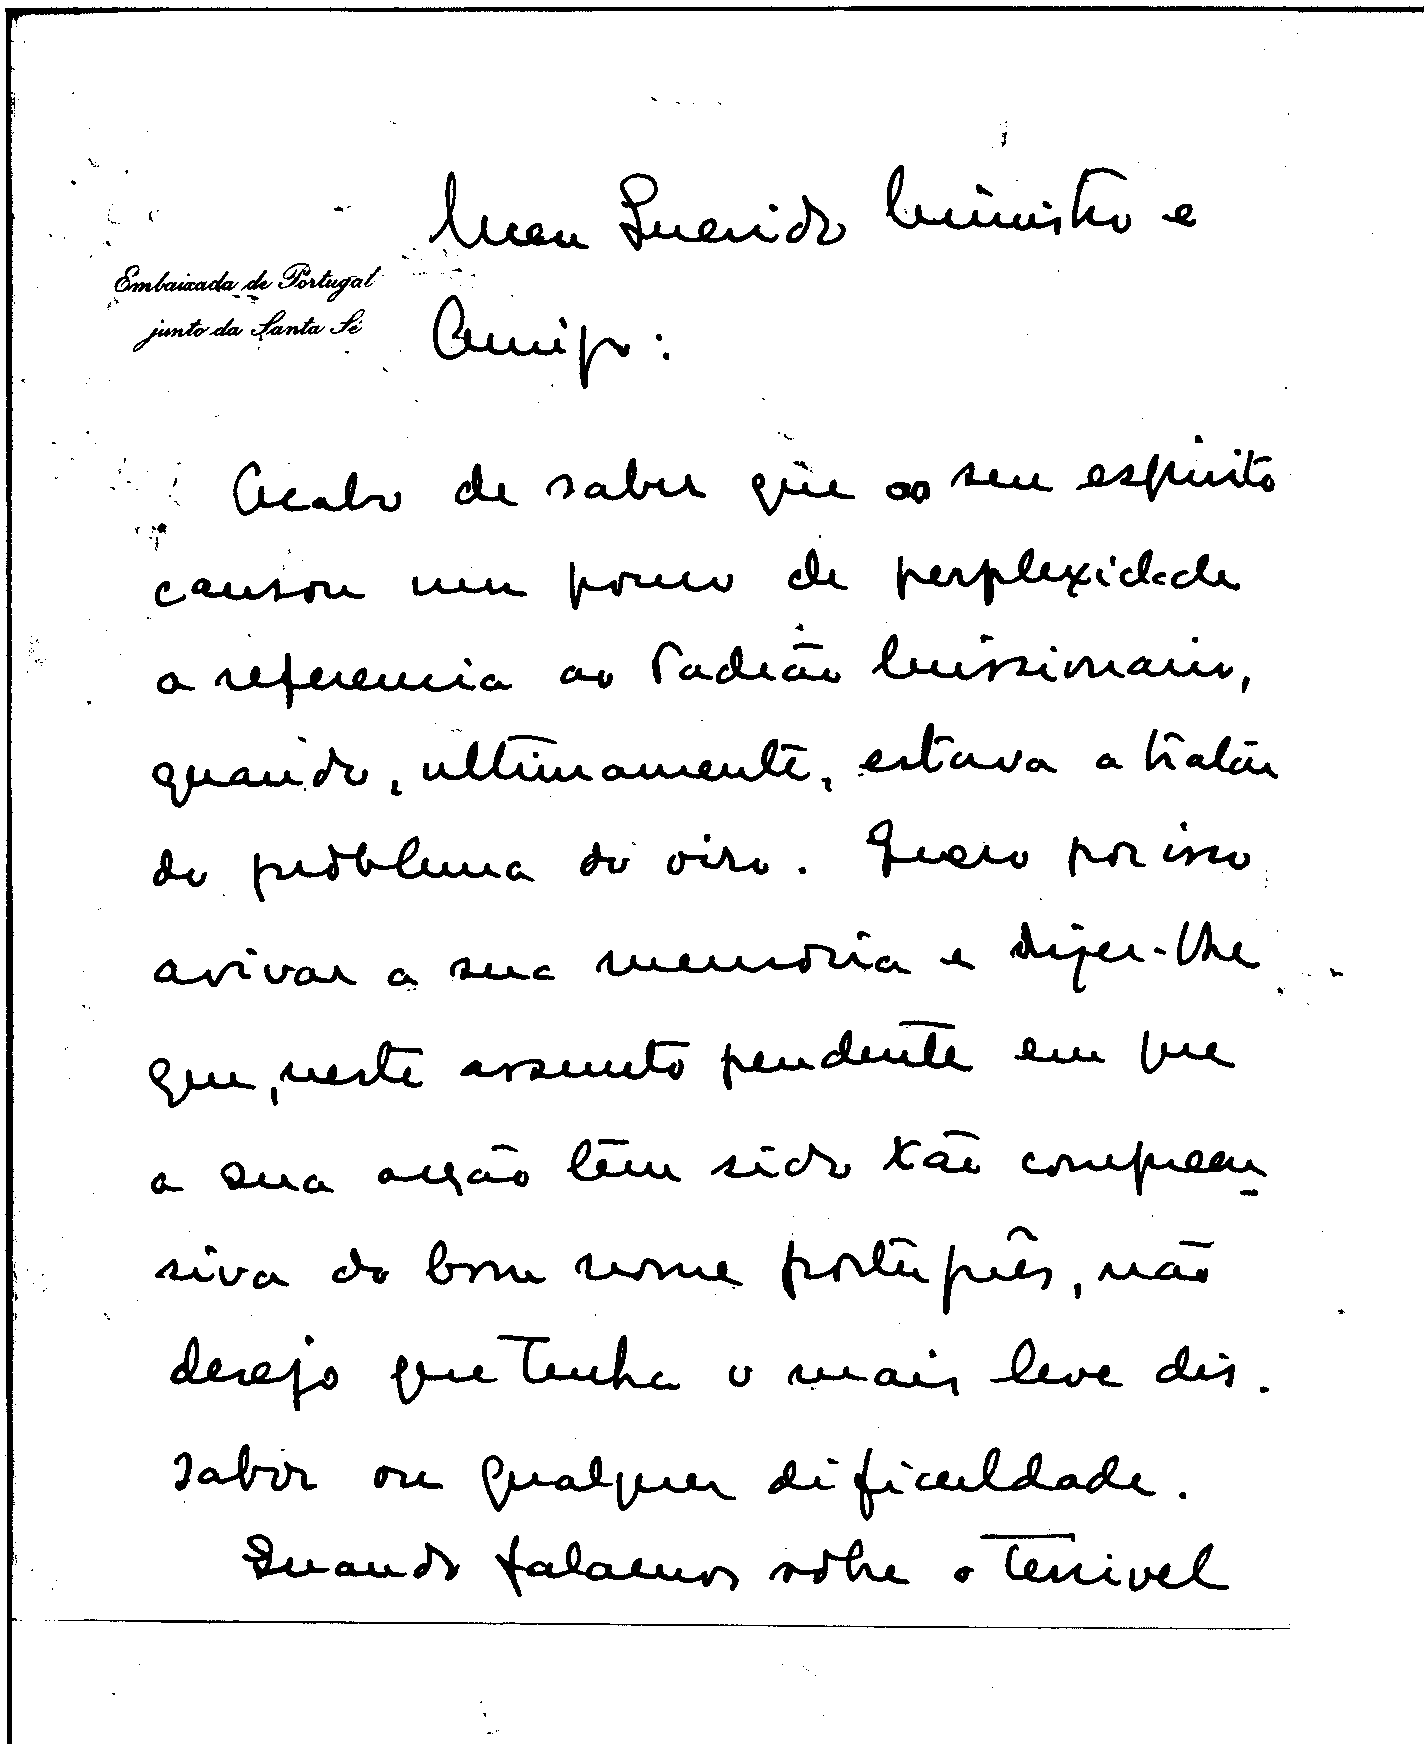 Meu Querido Ministro e
Embaixada de Portugal
junto da Santa Sé
Amigo:
Acabo de saber que ao seu espirito
causou um pouco de perplexidade
a referencia ao Padrão Missionario,
quando, ultimamente, estava a tratar
do problema do oiro. Quero por isso
avivar a sua memória e dizer-lhe
que, neste assunto pendente em que
a sua acção têm sido tão compreen
siva do bom nome português, não
desejo que tenha o mais leve dis-
sabor ou qualquer dificuldade.
Quando falamos sôbre o terrivel